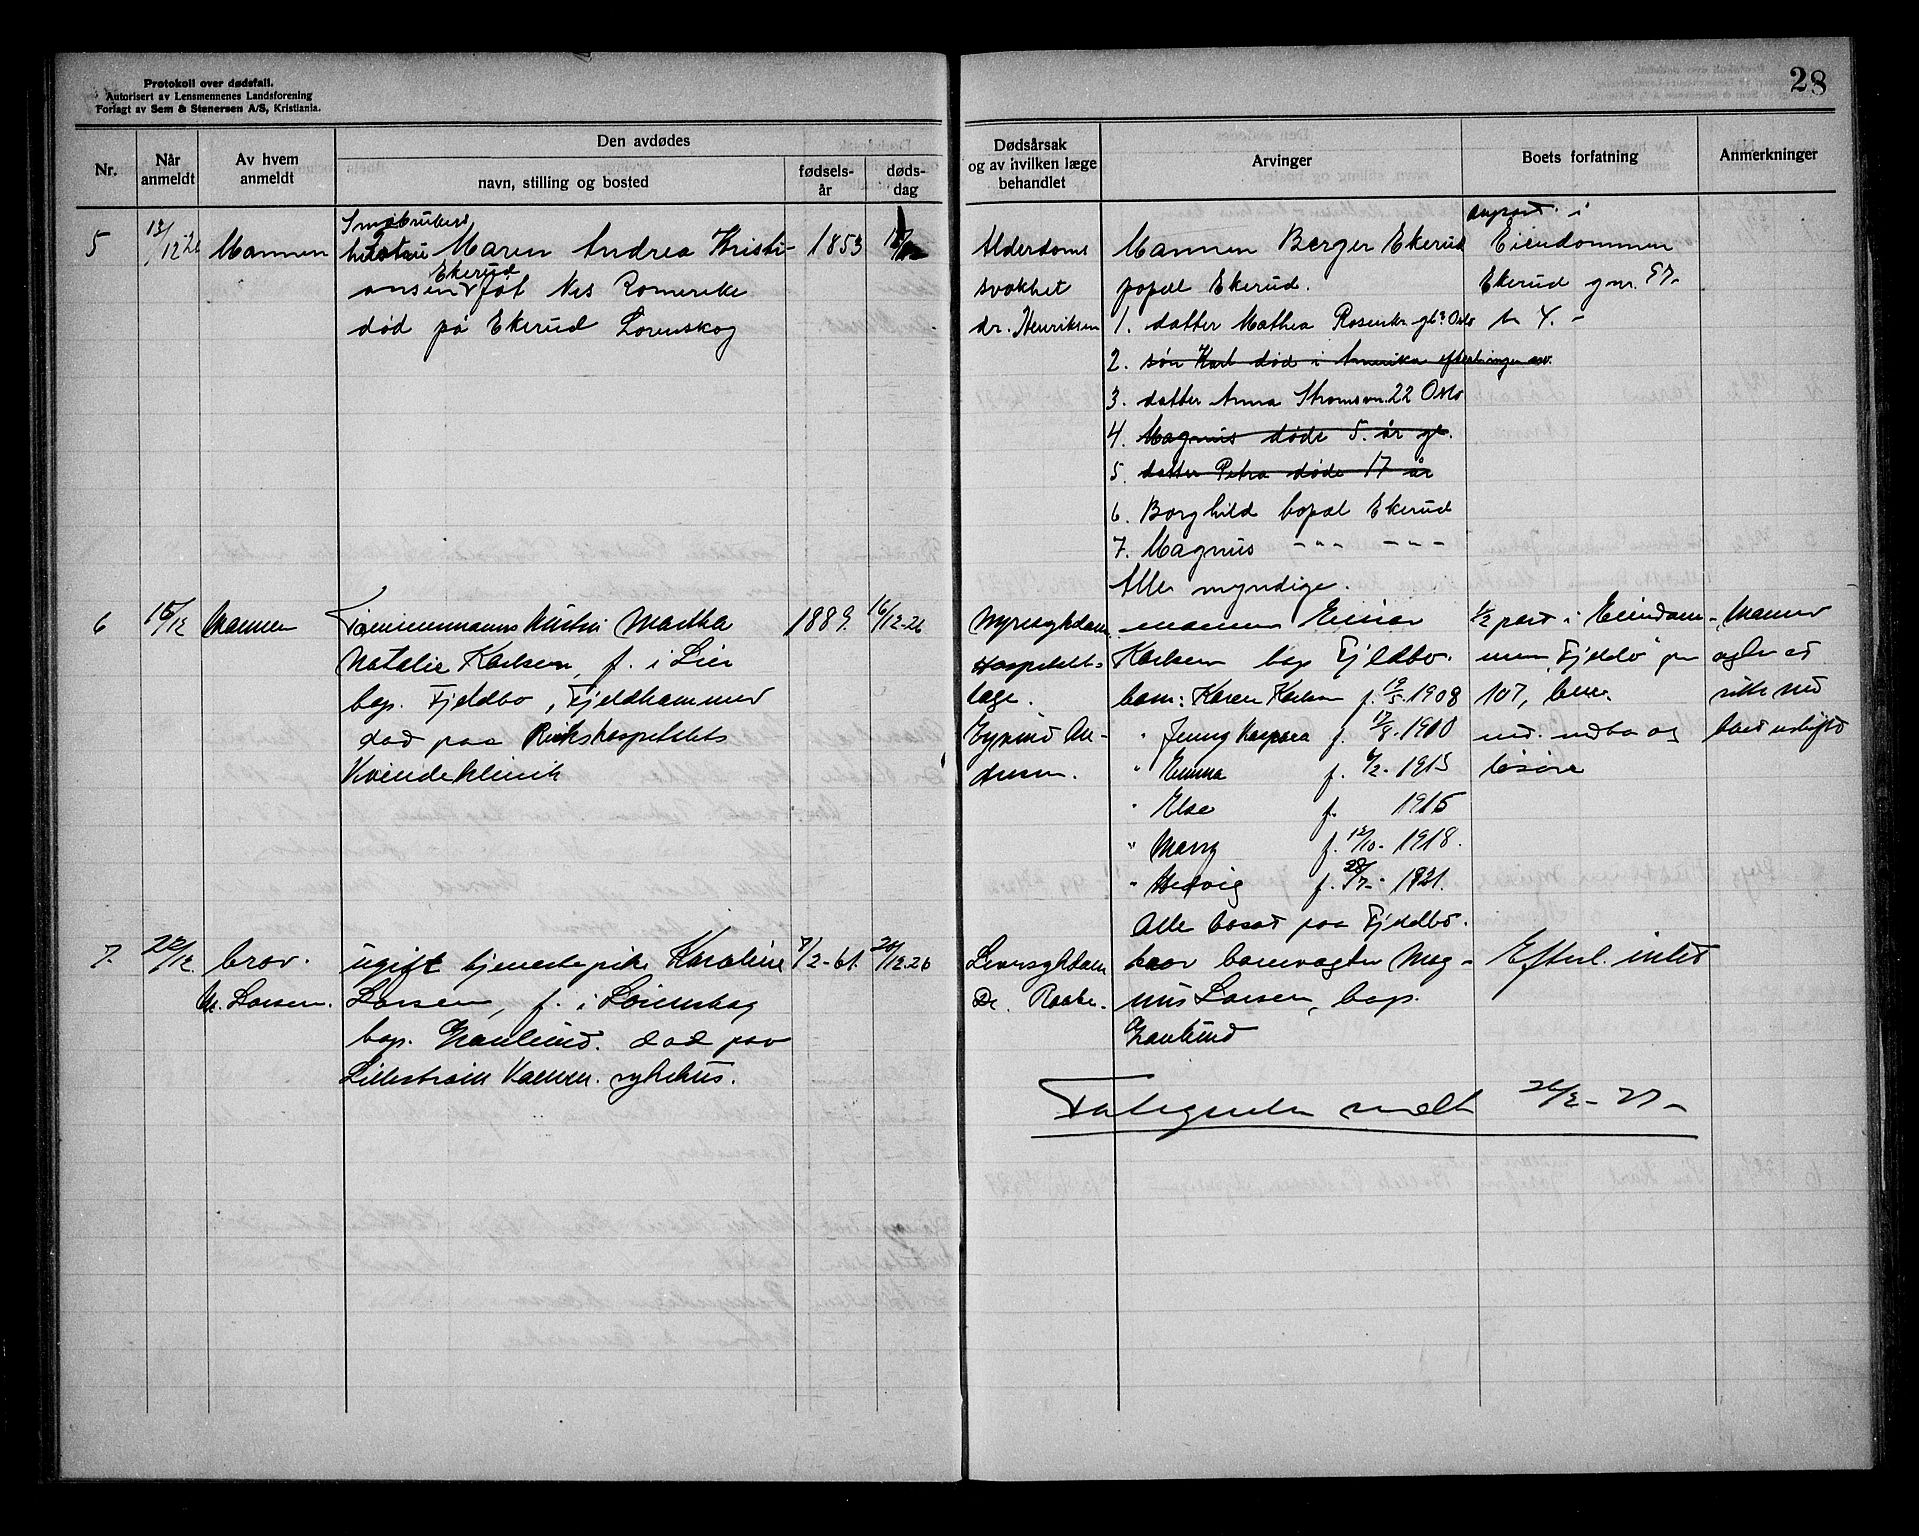 Protokoll over dødsfall.
Autorisert av Lensmennenes Landsforening
Forlagt av Sem & Stenersen A/S, Kristiania.
28
Nr.
Når anmeldt
Av hvem anmeldt
Den avdødes
navn, stilling og bosted
fødsels-år
døds-dag
Dødsårsak og av hvilken læge behandlet
Arvinger
Boets forfatning
Anmerkninger
5 13/12 26 Mannen
Småbrukerd
hustru Maren Andrea Kristi-
ansen Ekerud føt Nes Romerike
død på Ekerud Lørenskog
1853
Alderdoms
svakhet
dr. Henriksen
Mannen Berger Ekerud
bopæl Ekerud.
1. datter Mathea Rosenkr. gt. Oslo
2. søn Karl død i Amerika
3. datter Anna Strømsvn. 22 Oslo
4. Magnus døde 5. år gl.
5. datter Petra døde 17 år
6. Borghild bopæl Ekerud
7. Magnus - " - - " -
Alle myndige.
i
Eiendommen
Ekerud gnr. 97
bn 4. -
6 15/12 Mannen
Tømmermanns hustru Martha
Natalie Karlsen, f. i Lier
bop. Fjeldbo, Fjeldhammer
død paa Rikshospitalets
Kvindeklinik
1889.
16/12-26
Nyresykdom
Hospitals-
læge.
Eyvind An-
dresen.
mannen Einar
Karlsen bop Fjeldbo.
barn: Karen Karlsen f. 19/5-1908
" Jenny Kaspara f. 17/8-1910
" Emma f. 6/2-1913
" Else f. 1915
" Marry f. 12/10-1918.
" Hedvig f. 28/7-1921.
Alle bosat paa Fjeldbo.
1/2 part i Eiendom-
men Fjeldbo gnr
107, bnr.
med indbo og
løsøre
Mannen
agter at
sitte med
boet uskiftet
7. 22/12 brov.
M. Larsen.
ugift tjenestepike Karoline
Larsen, f. i Lørenskog
bop. Granlund. død paa
Lillestrøm Kommun. sykehus.
7/2-61.
20/12-26
Leversykdom
Dr. Raabe.
bror banevogter Mag-
nus Larsen, bop.
Granlund
Efterl. intet
melt 26/2-27-